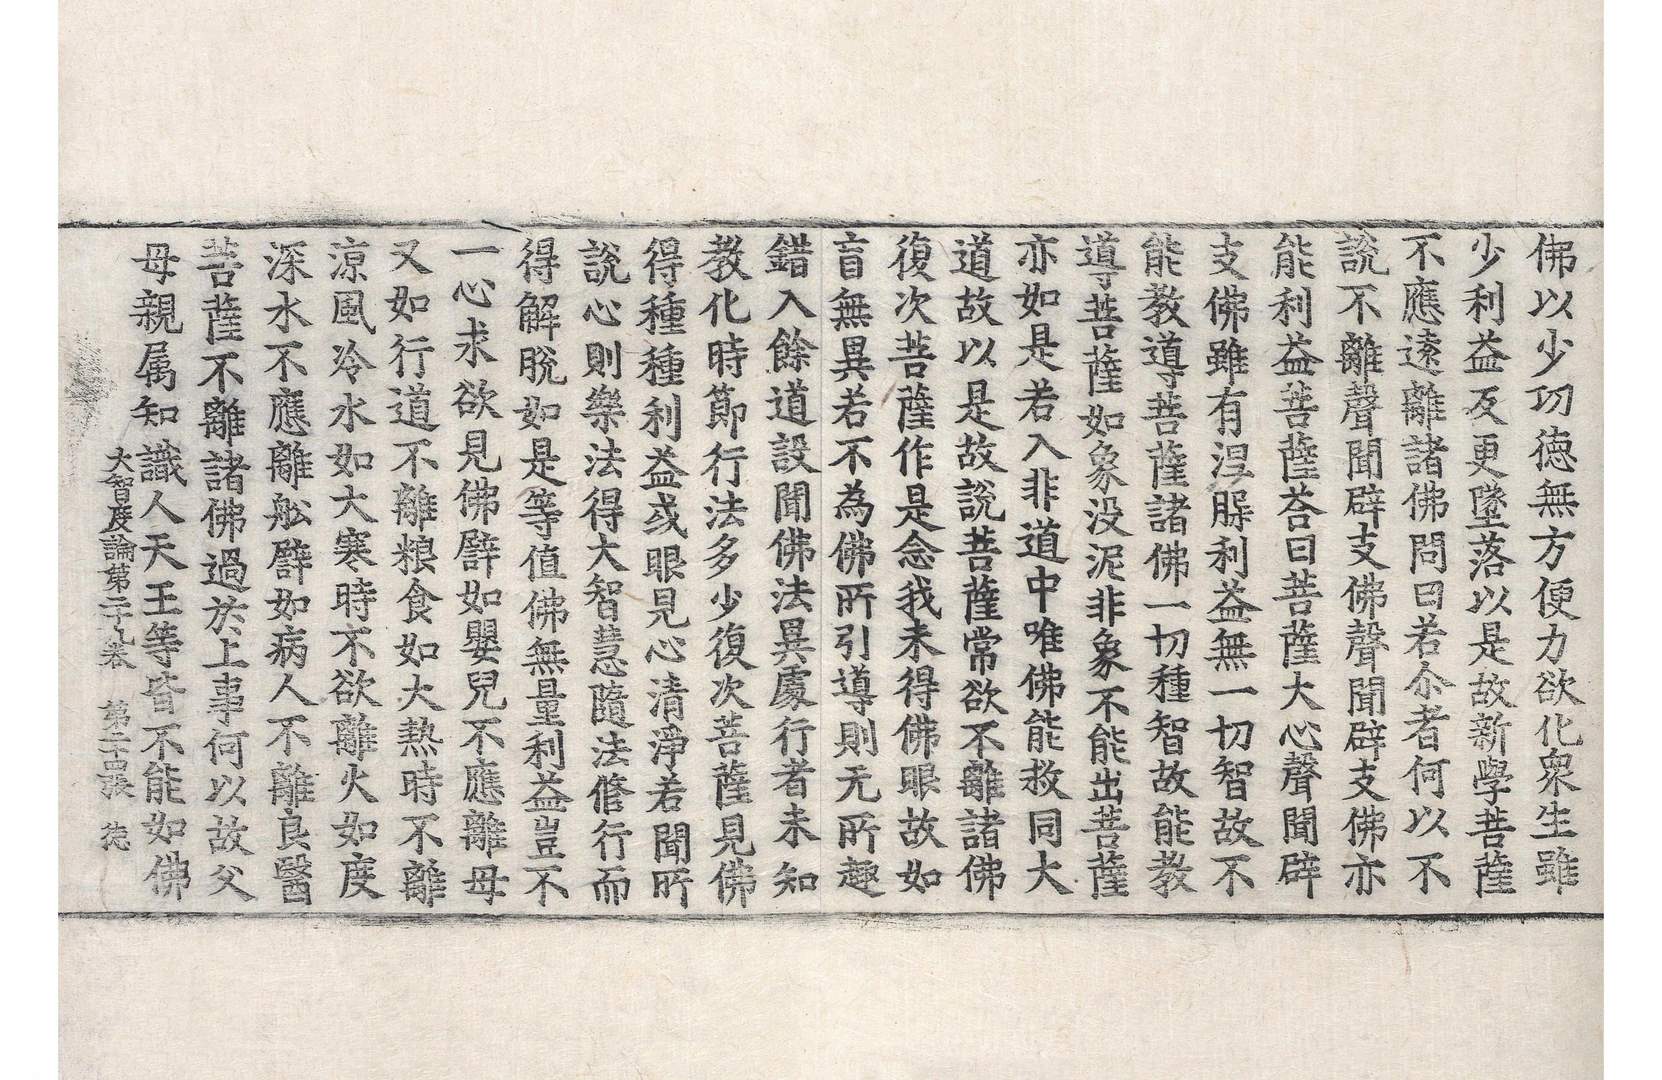 佛以少功德無方便力欲化衆生雖
少利益反更墜落以是故新學菩薩
不應遠離諸佛問曰若尒者何以不
說不離聲聞辟支佛聲聞辟支佛亦
能利益菩薩荅曰菩薩大心聲聞辟
支佛雖有涅槃利益無一切智故不
能教導菩薩諸佛一切種智故能教
導菩薩如象没泥非象不能出菩薩
亦如是若入非道中唯佛能救同大
道故以是故說菩薩常欲不離諸佛
復次菩薩作是念我未得佛眼故如
盲無異若不為佛所引導則无所趣
錯入餘道設聞佛法異處行者未知
教化時節行法多少復次菩薩見佛
得種種利益或眼見心清淨若聞所
說心則樂法得大智慧隨法俻行而
得解脫如是等值佛無量利益豈不
一心求欲見佛譬如嬰兒不應離母
又如行道不離粮食如大熱時不離
涼風冷水如大寒時不欲離火如度
深水不應離舩譬如病人不離良醫
菩薩不離諸佛過於上事何以故父
母親属知識人天王等皆不能如佛
大智度論第二十九卷　第二十四張　徳